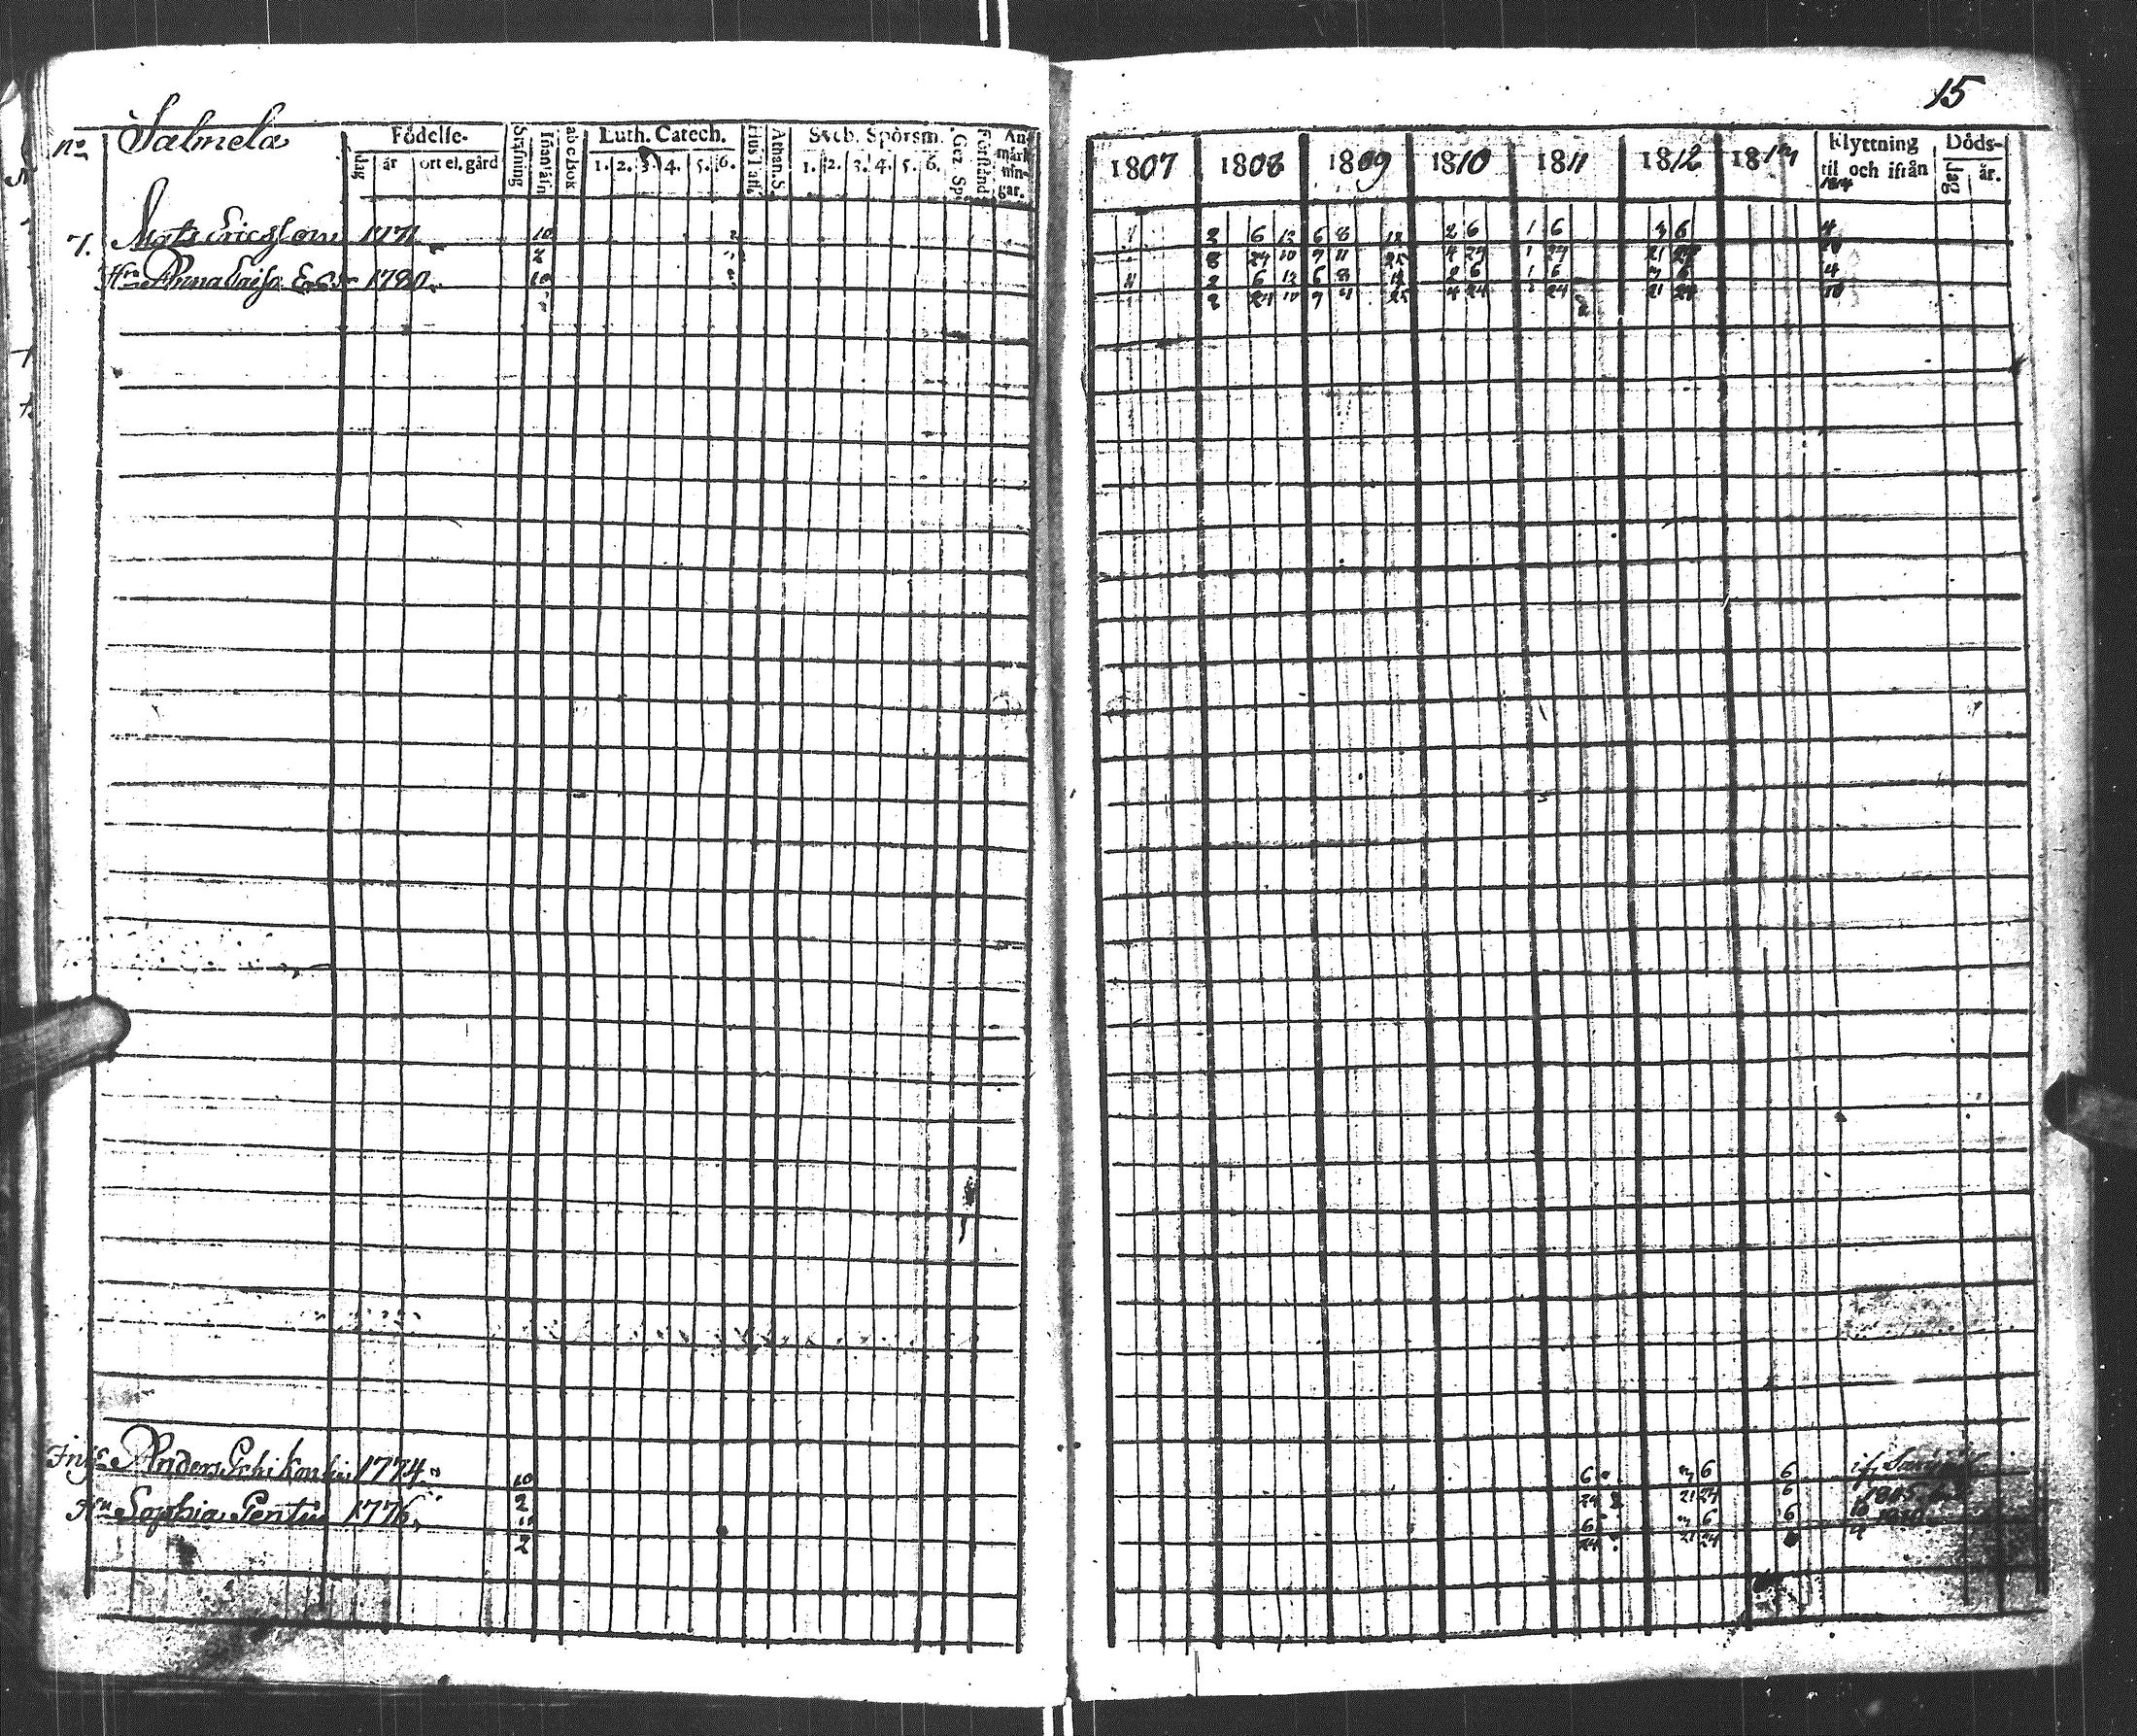 15
no Salmela
Födelse-
dag år ort el. gård
Stafning
Innanläsn
abcbok
Luth. Catech.
1. 2. 3. 4. 5. 6.
Athan. S.
Sveb. Spörsm.
1. 2. 3. 4. 5. 6.
Gez. Sp.
Förstånd
An-
märk
nin-
gar.
1807 1808 1809 1810 1811 1812 1813
Flyttning
til och ifrån
1814
Döds-
dag år.
7. Mats Ericsson 1771 10
2 6 13 6 8 12 2 6 1 6 3 6 4
2
8 24 10 9 11 25 4 24 1 24 21 24 10
Hru Anna Caisa 1780 10
2 6 13 6 8 12 2 6 1 6 3 6 4
8 24 10 9 11 25 4 24 1 24 21 24 10
Anders 1774 10
6 3 6 6
2
24 21 24 6
Hru Sophia Pentus 1776 11
6 3 6 6
2
24 21 24